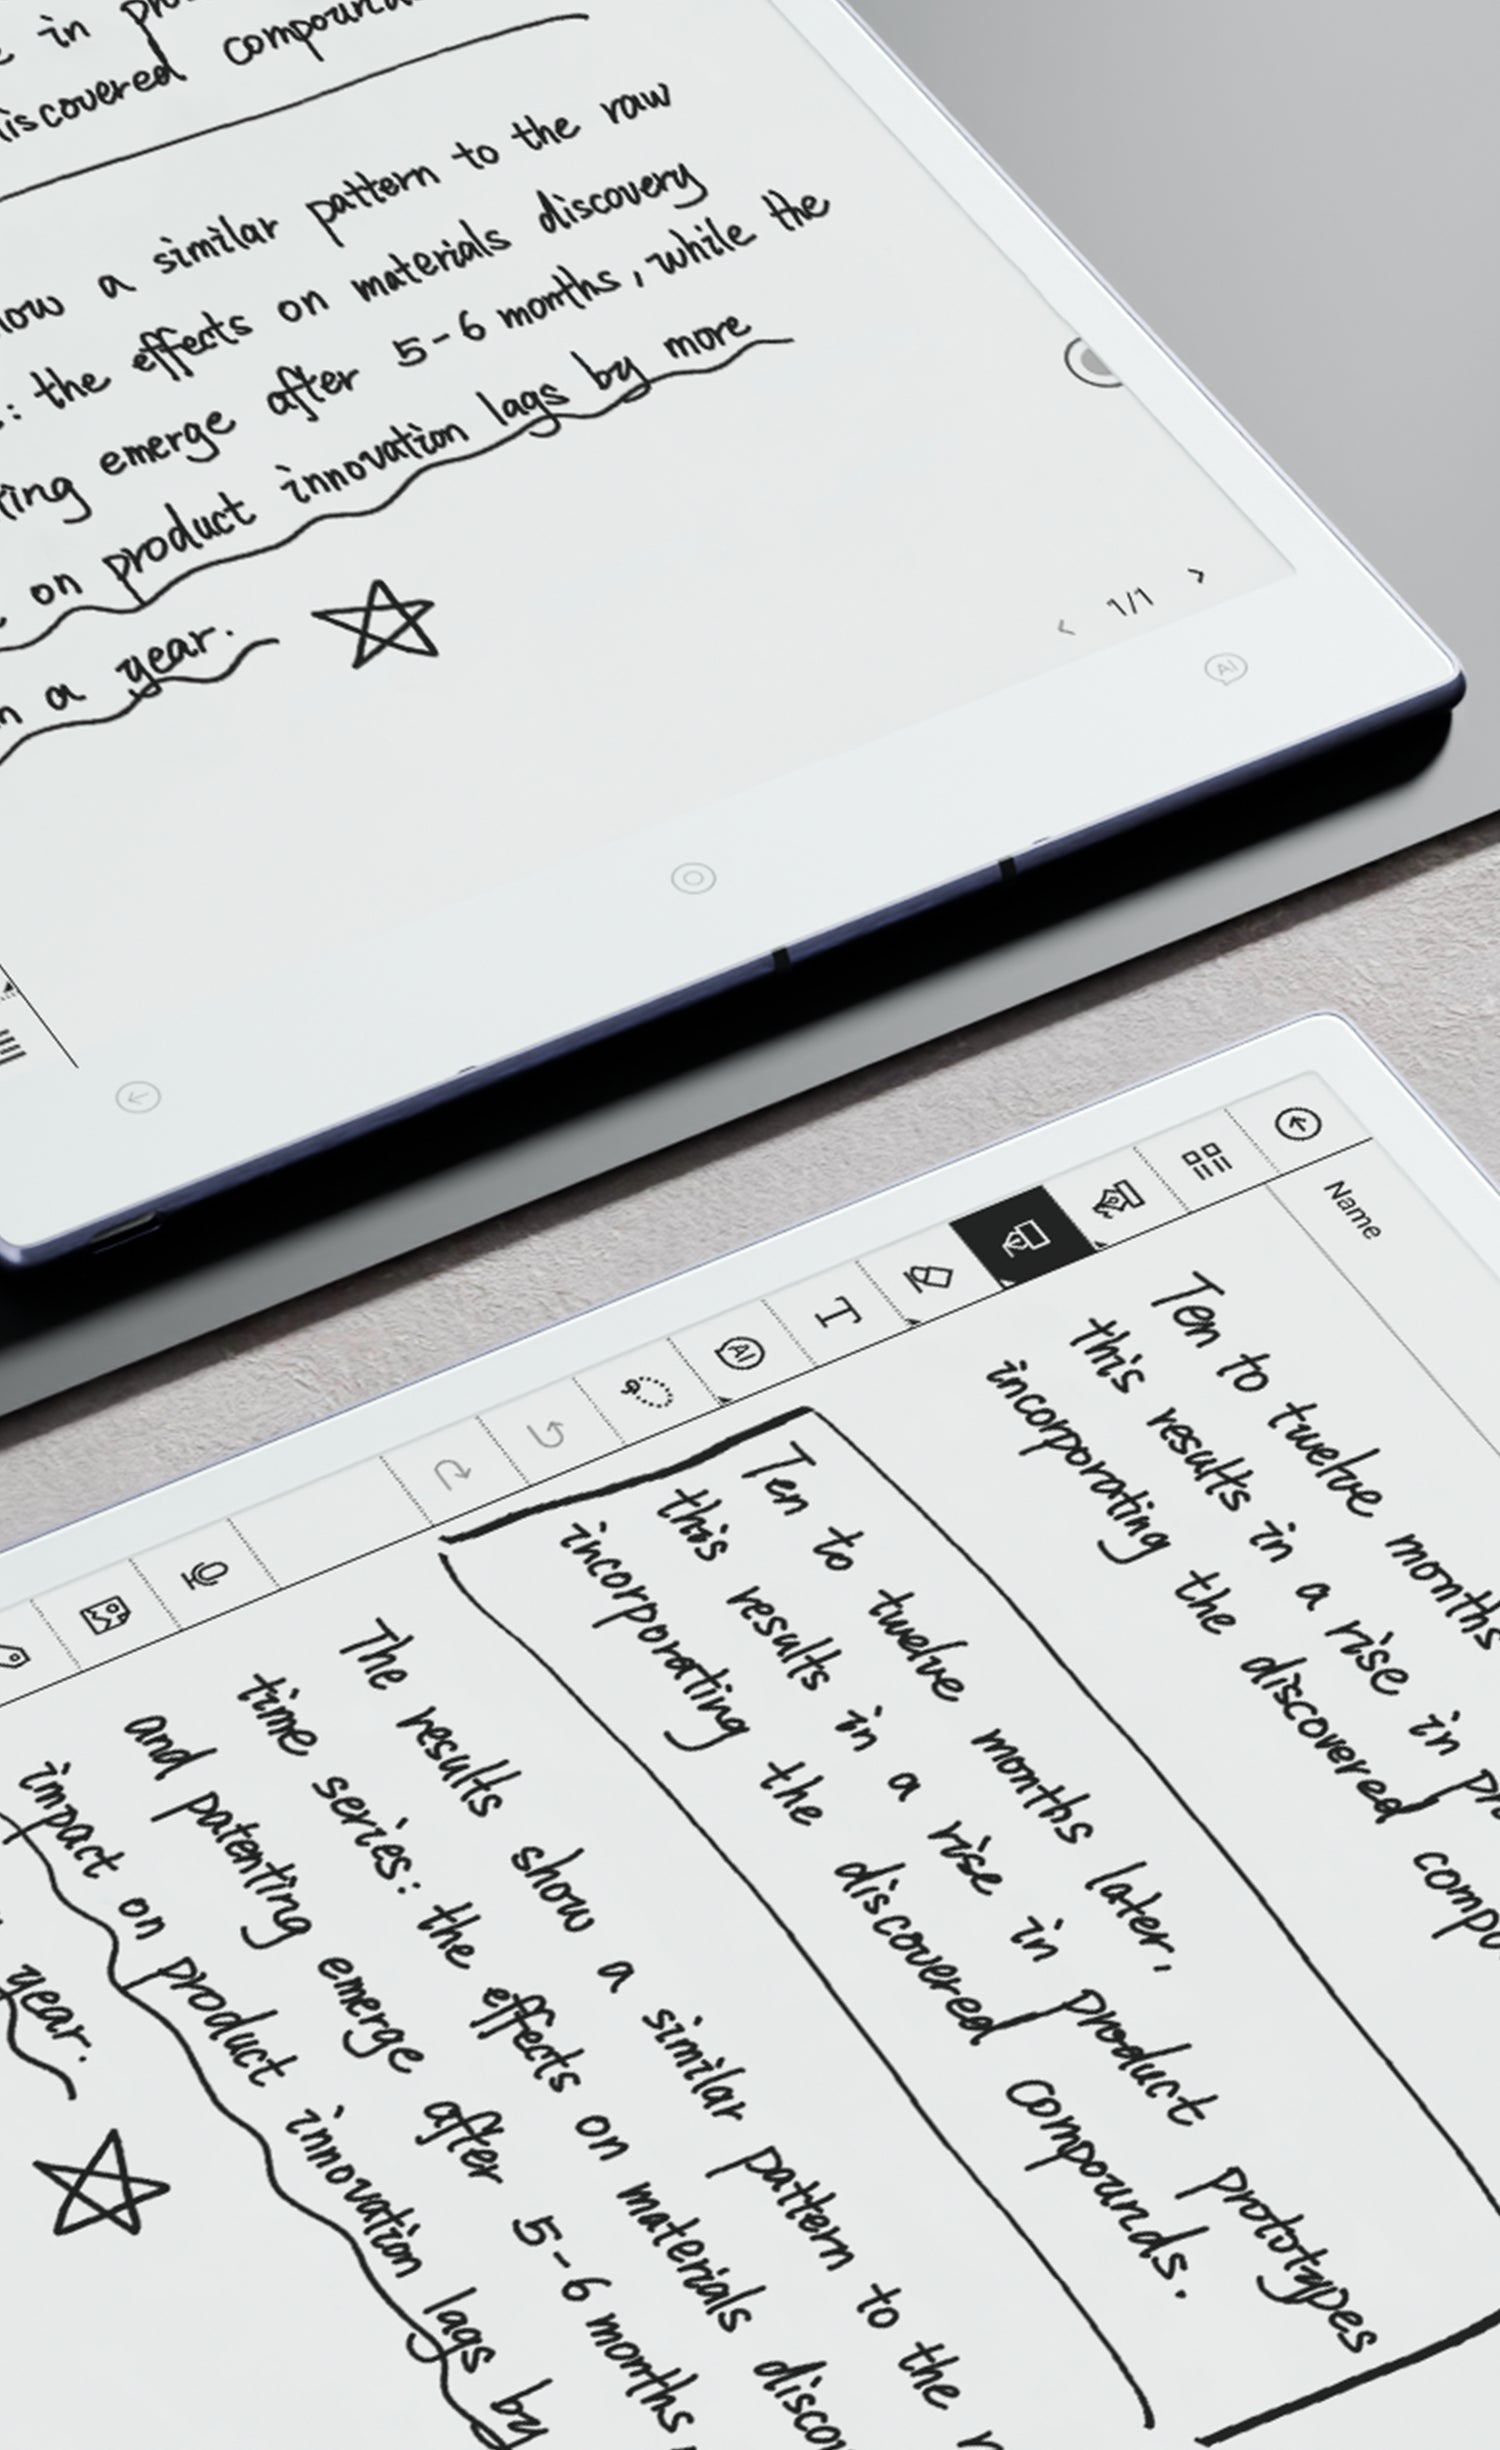 in
discovered compound
a similar pattern to the raw
: the effects on materials discovery
emerge after 5-6 months, while the
on product innovation lags by more
a year.
< 1/1 >
AI
Name
T
AI
Ten to twelve months
this results in a rise in
incorporating the discovered
Ten to twelve months later,
this results in a rise in product prototypes
incorporating the discovered compounds.
The results show a similar pattern to the
time series: the effects on materials
and patenting emerge after 5-6 months
impact on product innovation lags by
year.